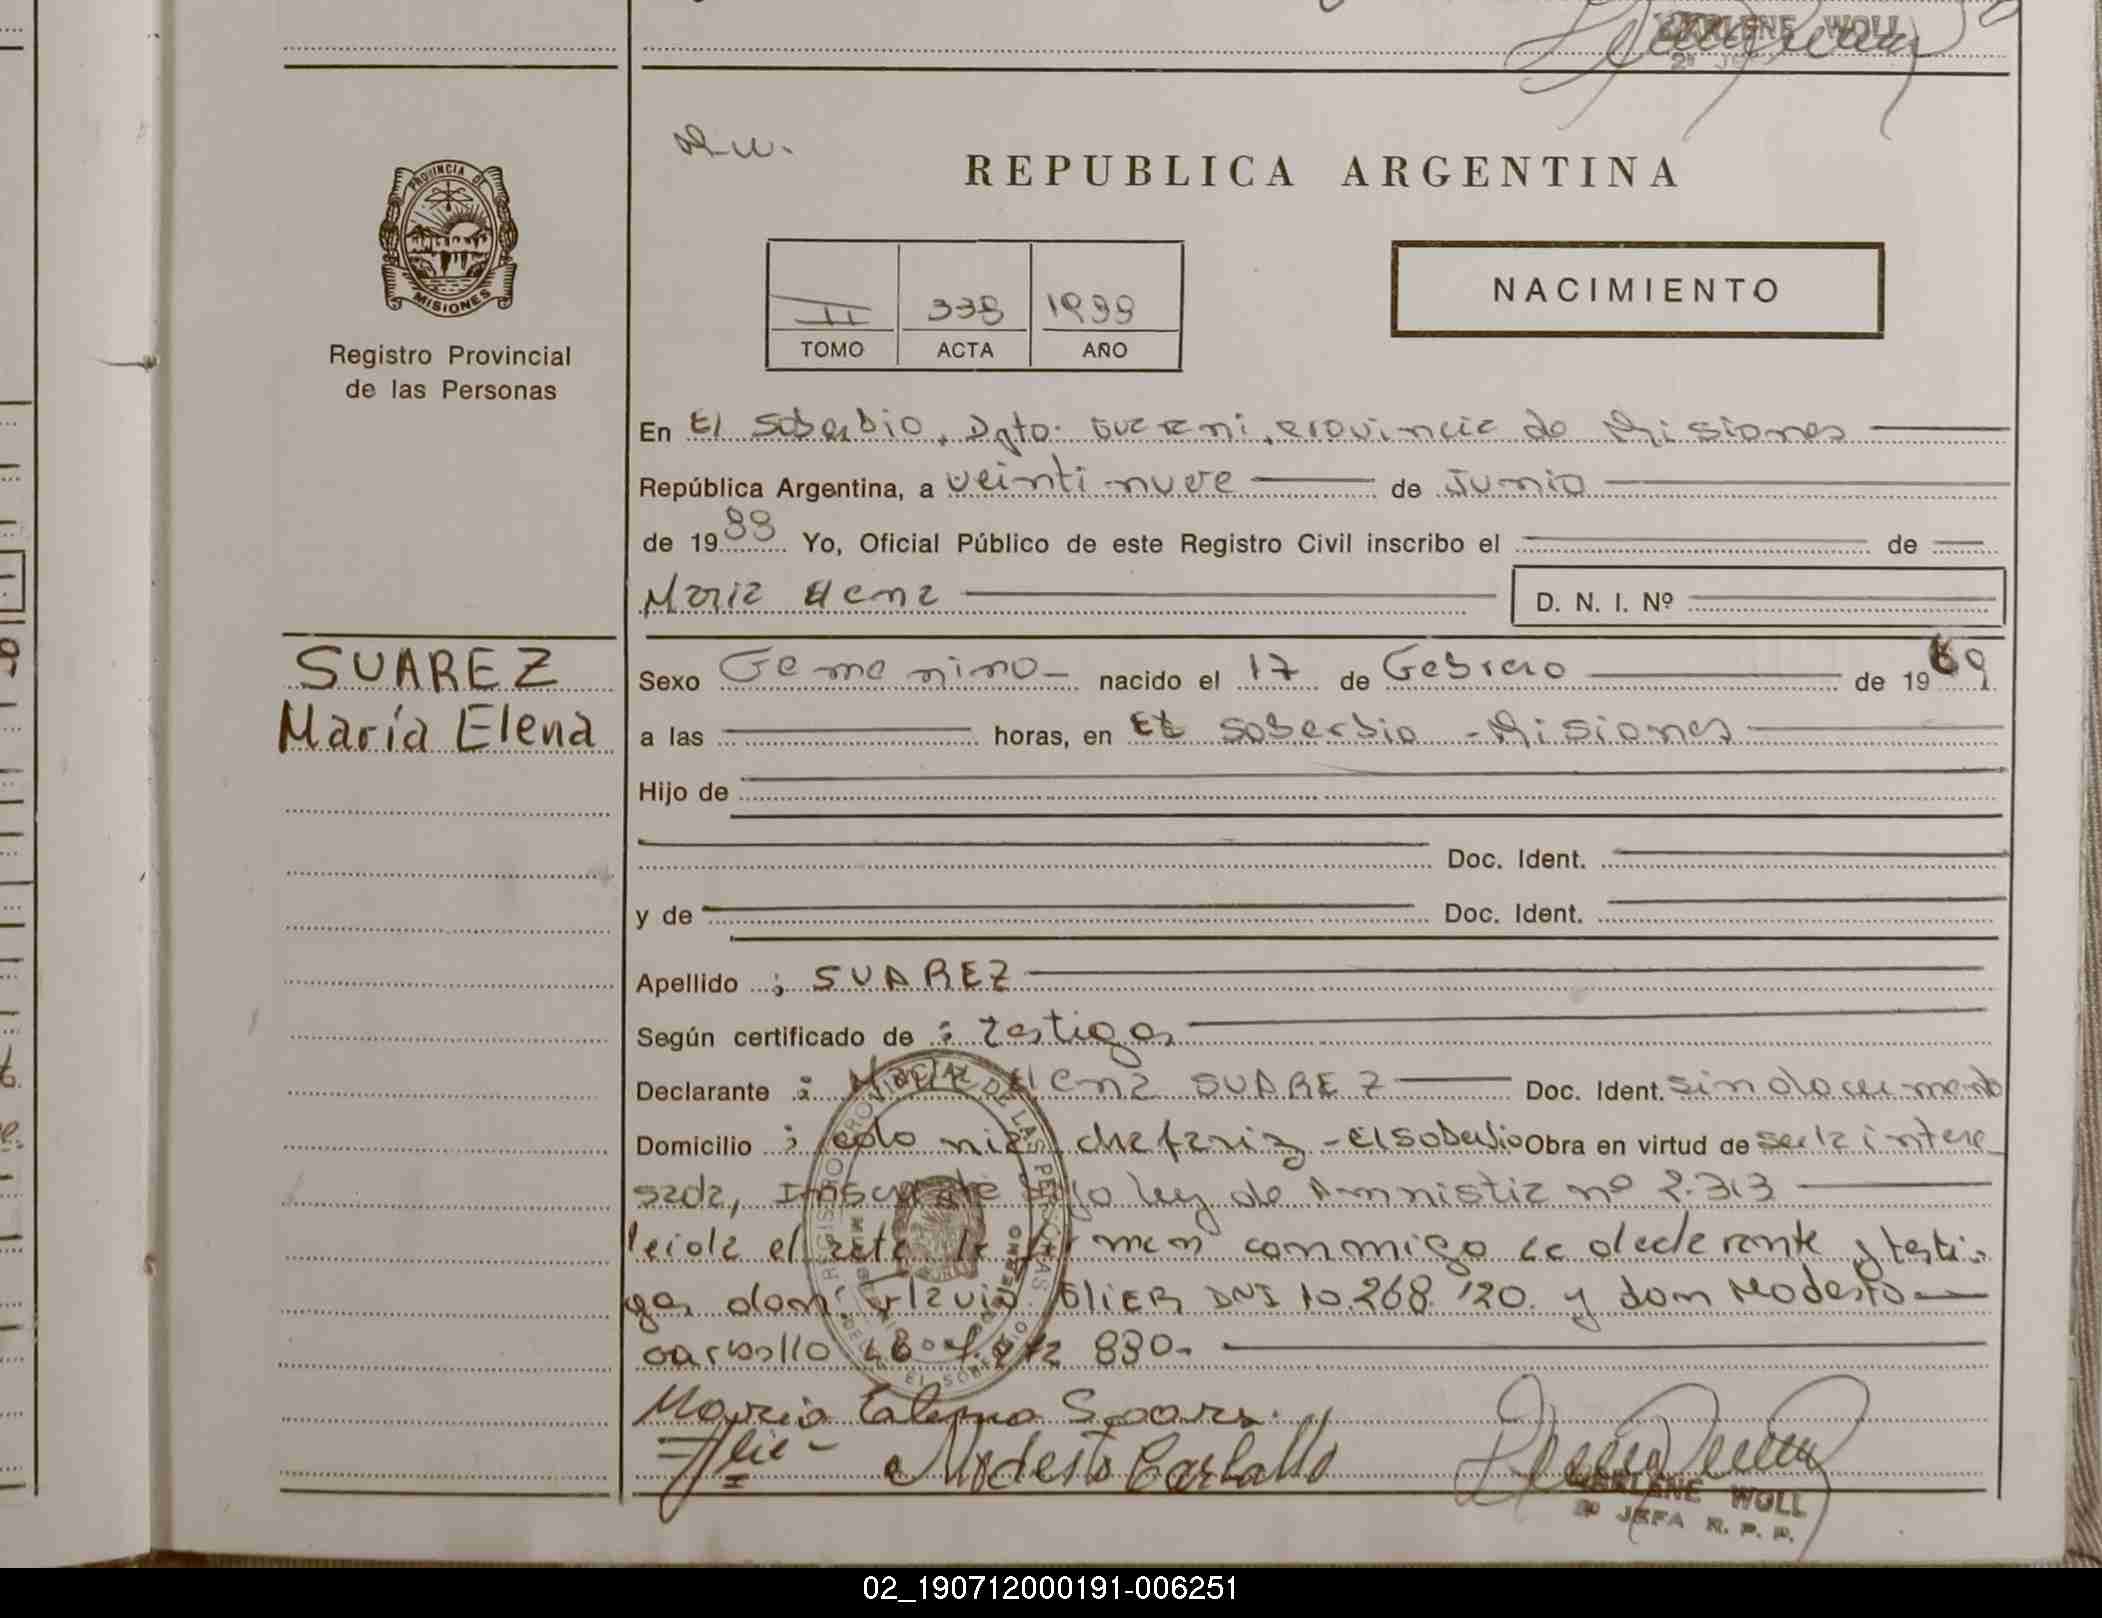 MARLENE WOLL
REPUBLICA ARGENTINA
PROVINCIA DE
MISIONES
Registro Provincial
de las Personas
NACIMIENTO
II 338 1988
TOMO ACTA AÑO
En El Soberbio, Dpto. Guarani, Provincia de Misiones
República Argentina, a veinti nueve de Junio
de 1988 Yo, Oficial Público de este Registro Civil inscribo el de
Maria Elena D. N. I. Nº
SUAREZ
María Elena
Sexo Femenino nacido el 17 de Febrero de 1969
a las horas, en El Soberbio - Misiones
Hijo de
Doc. Ident.
y de Doc. Ident.
Apellido : SUAREZ
Según certificado de : Testigos
Declarante : Maria Elena SUAREZ Doc. Ident. sin documento
Domicilio : colonia chafariz - El Soberbio Obra en virtud de ser la intere
sada, Inscripta bajo ley de Amnistia nº 2.313
leida el acta la firman conmigo la declarante y testi-
gos don OLIER DNI 10.268.120. y don Modesto
carballo 830.
Maria Elena
Modesto Carballo
MARLENE WOLL
2º JEFA R. P. P.
02_190712000191-006251